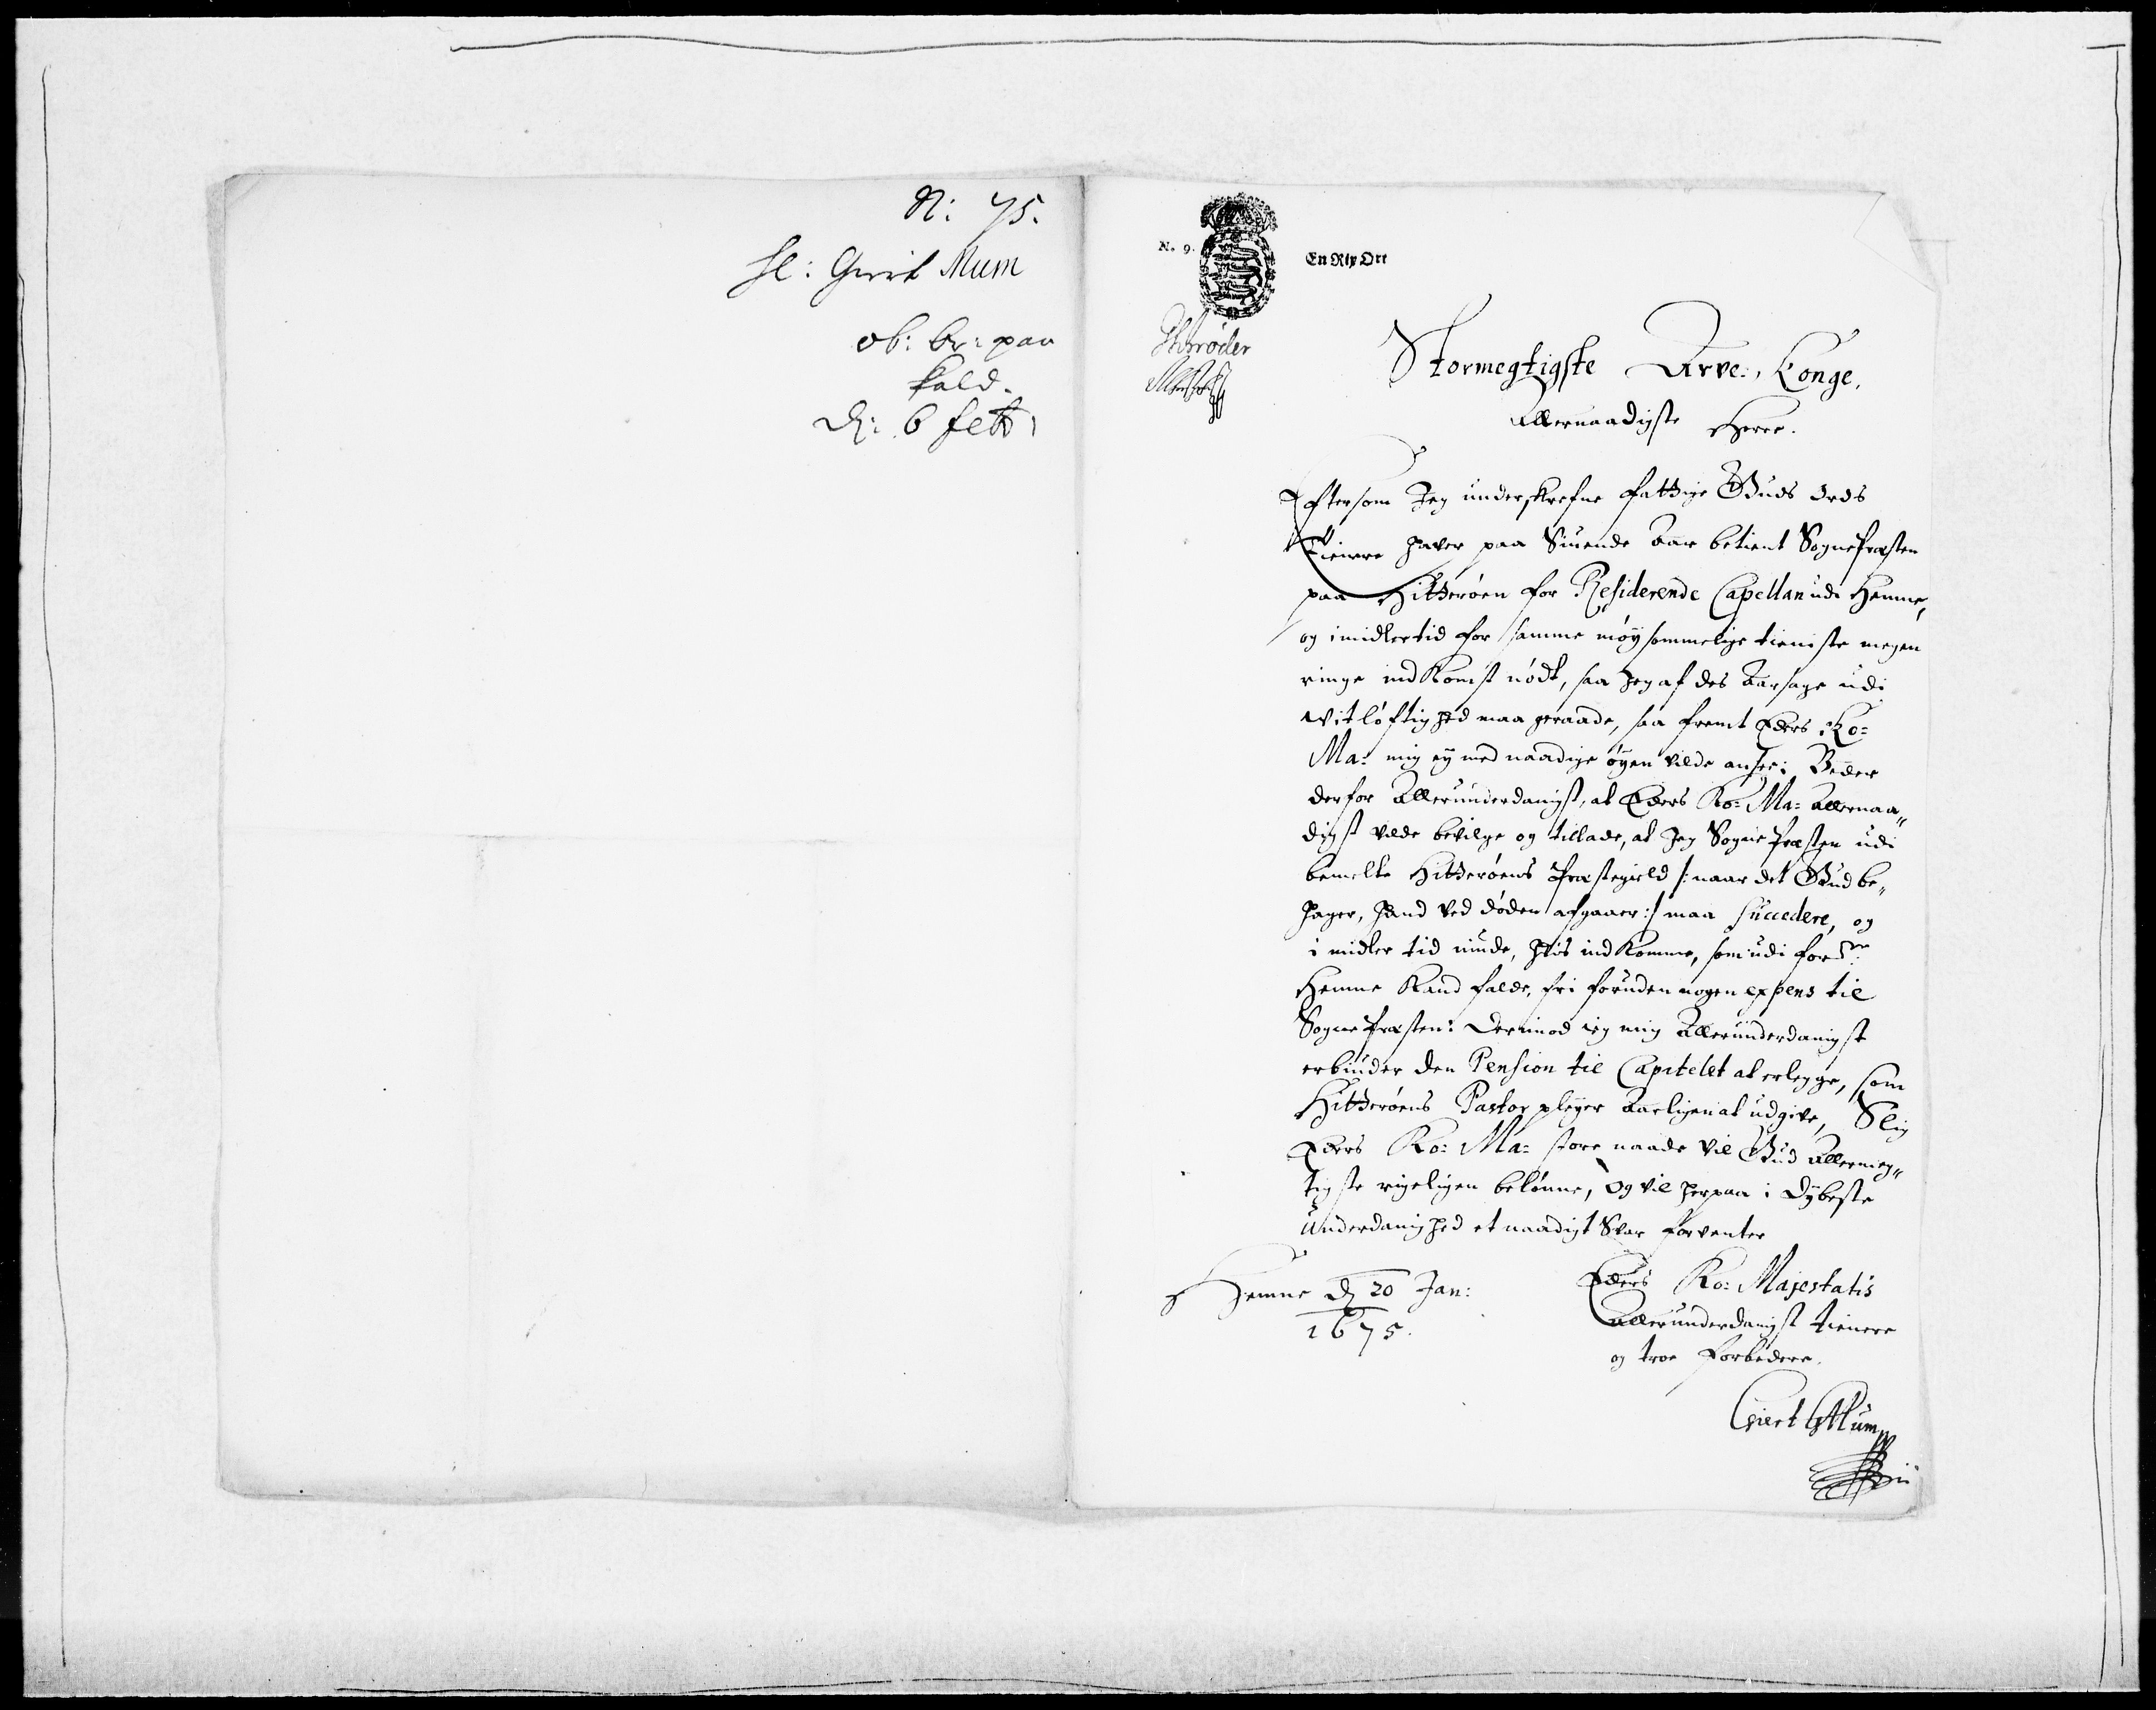 N: 75.
Hr: Giert Mum
ob: br: paa
kald.
d: 6 febr
N. 9.
En Rix Ort
Schrøder
Stormegtigste Arve, Konge,
Allernaadigste Herre.
Eftersom Jeg underskrefne fattige Guds Ords
Tienere haver paa Siuende Aar betient Sognepræsten
paa Hitterøen for Residerende Capellan udi Hemne,
og imidlertid for samme møysommelige tieniste megen
ringe indKomst nødt, saa Jeg af des Aarsage udi
vitløftighed maa geraade, saa fremt Eders Ko:
Ma: mig ey med naadige øyen vilde ansee; Beder
derfor Allerunderdanigst, at Eders Ko: Ma: Allernaa„
digst vilde bevilge og tillade, at Jeg Sognepræsten udi
bemelte Hitterøens Præstegield /: naar det Gud be„
hager, hand ved døden afgaaer :/ maa succedere, og
i midler tid niude, hvis indKomme, som udi forne:
Hemne Kand falde, fri foruden nogen expens til
Sognepræsten: Derimod ieg mig Allerunderdanigst
erbiuder den Pension til Capitelet at erlegge, som
Hitterøens Pastor pleyer Aarligen at udgive, Slig
Eders Ko: Ma: store naade vil Gud Allermeg„
tigste rigeligen belønne, Og vil herpaa i Dybeste
Underdanighed et naadigt Svar forventer
Hemne d 20 Jan:
1675.
Eders Ko: Majestatis
Allerunderdanigst tienere
og troe forbedere.
Giert Mum